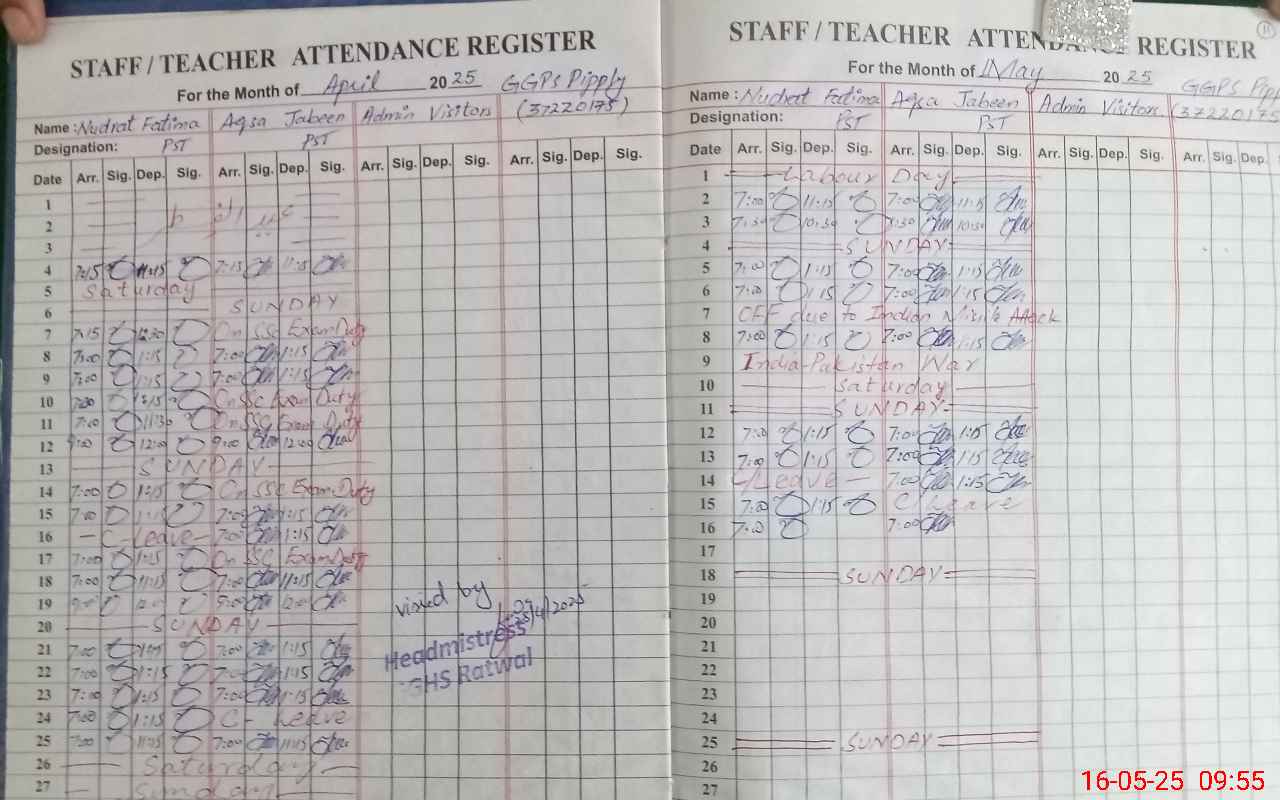 STAFF / TEACHER ATTENDANCE REGISTER
For the Month of April 2025 GGPS Pipply
Name : Nudrat Fatima Aqsa Jabeen Admin Visitors (37220175)
Designation: PST PST
Date Arr. Sig. Dep. Sig. Arr. Sig. Dep. Sig. Arr. Sig. Dep. Sig. Arr. Sig. Dep. Sig.
1
2
3
4 7:15 11:15 7:15 11:15
5 Saturday
6 SUNDAY
7 7:15 12:30 On SSC Exam Duty
8 7:00 1:15 7:00 1:15
9 7:00 1:15 7:00 1:15
10 7:00 1:15 On SSC Exam Duty
11 7:00 11:30 On SSC Exam Duty
12 9:00 12:00 9:00 12:00
13 SUNDAY
14 7:00 1:15 On SSC Exam Duty
15 7:00 1:15 7:00 1:15
16 - C-Leave - 7:00 1:15
17 7:00 1:15 On SSC Exam Duty
18 7:00 11:15 7:00 11:15
19 9:00 12:00 9:00 12:00
20 SUNDAY
21 7:00 1:15 7:00 1:15
22 7:00 1:15 7:00 1:15
23 7:00 1:15 7:00 1:15
24 7:00 1:15 C- Leave
25 7:00 11:15 7:00 11:15
26 Saturday
27 Sunday
visied by
25/4/2025
Headmistress
GHS Ratwal
STAFF / TEACHER ATTENDANCE REGISTER
For the Month of May 2025 GGPS Pipply
Name : Nudrat Fatima Aqsa Jabeen Admin Visitors (37220175
Designation: PST PST
Date Arr. Sig. Dep. Sig. Arr. Sig. Dep. Sig. Arr. Sig. Dep. Sig. Arr. Sig. Dep.
1 Labour Day
2 7:00 11:15 7:00 11:15
3 7:30 10:30 7:30 10:30
4 SUNDAY
5 7:00 1:15 7:00 1:15
6 7:00 1:15 7:00 1:15
7 OFF due to Indian Missile Attack
8 7:00 1:15 7:00 1:15
9 India-Pakistan War
10 Saturday
11 SUNDAY
12 7:00 1:15 7:00 1:15
13 7:00 1:15 7:00 1:15
14 C/Leave - 7:00 1:15
15 7:00 1:15 C Leave
16 7:00 7:00
17
18 SUNDAY
19
20
21
22
23
24
25 SUNDAY
26
27
16-05-25 09:55